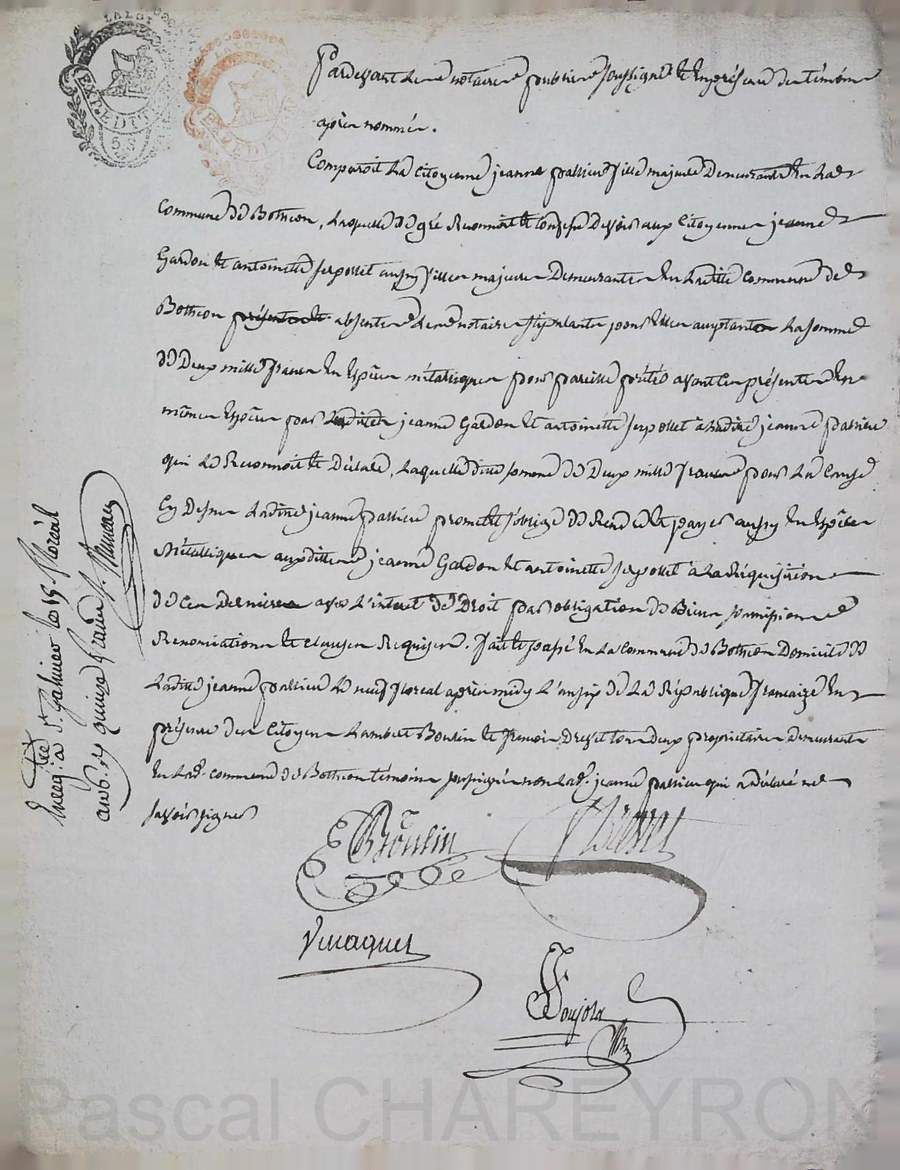 LA LOI
EXPÉDITION
LA LOI
EXPÉDITION
Pardevant le notaire public soussigné et En présence des témoins
après nommés.
Comparoit La Citoyenne jeanne fille majeure Demeurante En La
Commune de Bothéon, Laquelle de gré Reconnoit et Confesse Devoir aux Citoyennes jeanne
Gardon et antoinette aussy filles majeures Demeurantes En Ladite Commune de
Bothéon absentes le notaire stipulant pour elles acceptant La somme
de Deux mille francs En Espèces métalliques pour pareille prêtés avant Ces présentes En
mêmes Espèces par jeanne Gardon et antoinette à Ladite jeanne
qui Le Reconnoit et Déclare, Laquelle dite somme de Deux mille francs pour La Cause
Cy Dessus Ladite jeanne promet et s'oblige de Rendre et payer aussy En Espèces
Métalliques auxdittes jeanne Gardon et antoinette à La Réquisition
de Ces Dernières avec L'intérêt de Droit par obligation de Biens soumissions
Renonciations et clauses Requises. fait et passé En La Commune de Bothéon Domicile de
Ladite jeanne Le neuf floreal après midy L'an six de La République française En
présence des Citoyens Lambert Boulin et tous Deux propriétaires Demeurants
En Lad. commune de Bothéon témoins soussignés non Lad. jeanne qui a déclaré ne
savoir signer
Boulin
Enreg. à St Galmier le 15 floréal
an 6. quinze francs
Pascal CHAREYRON